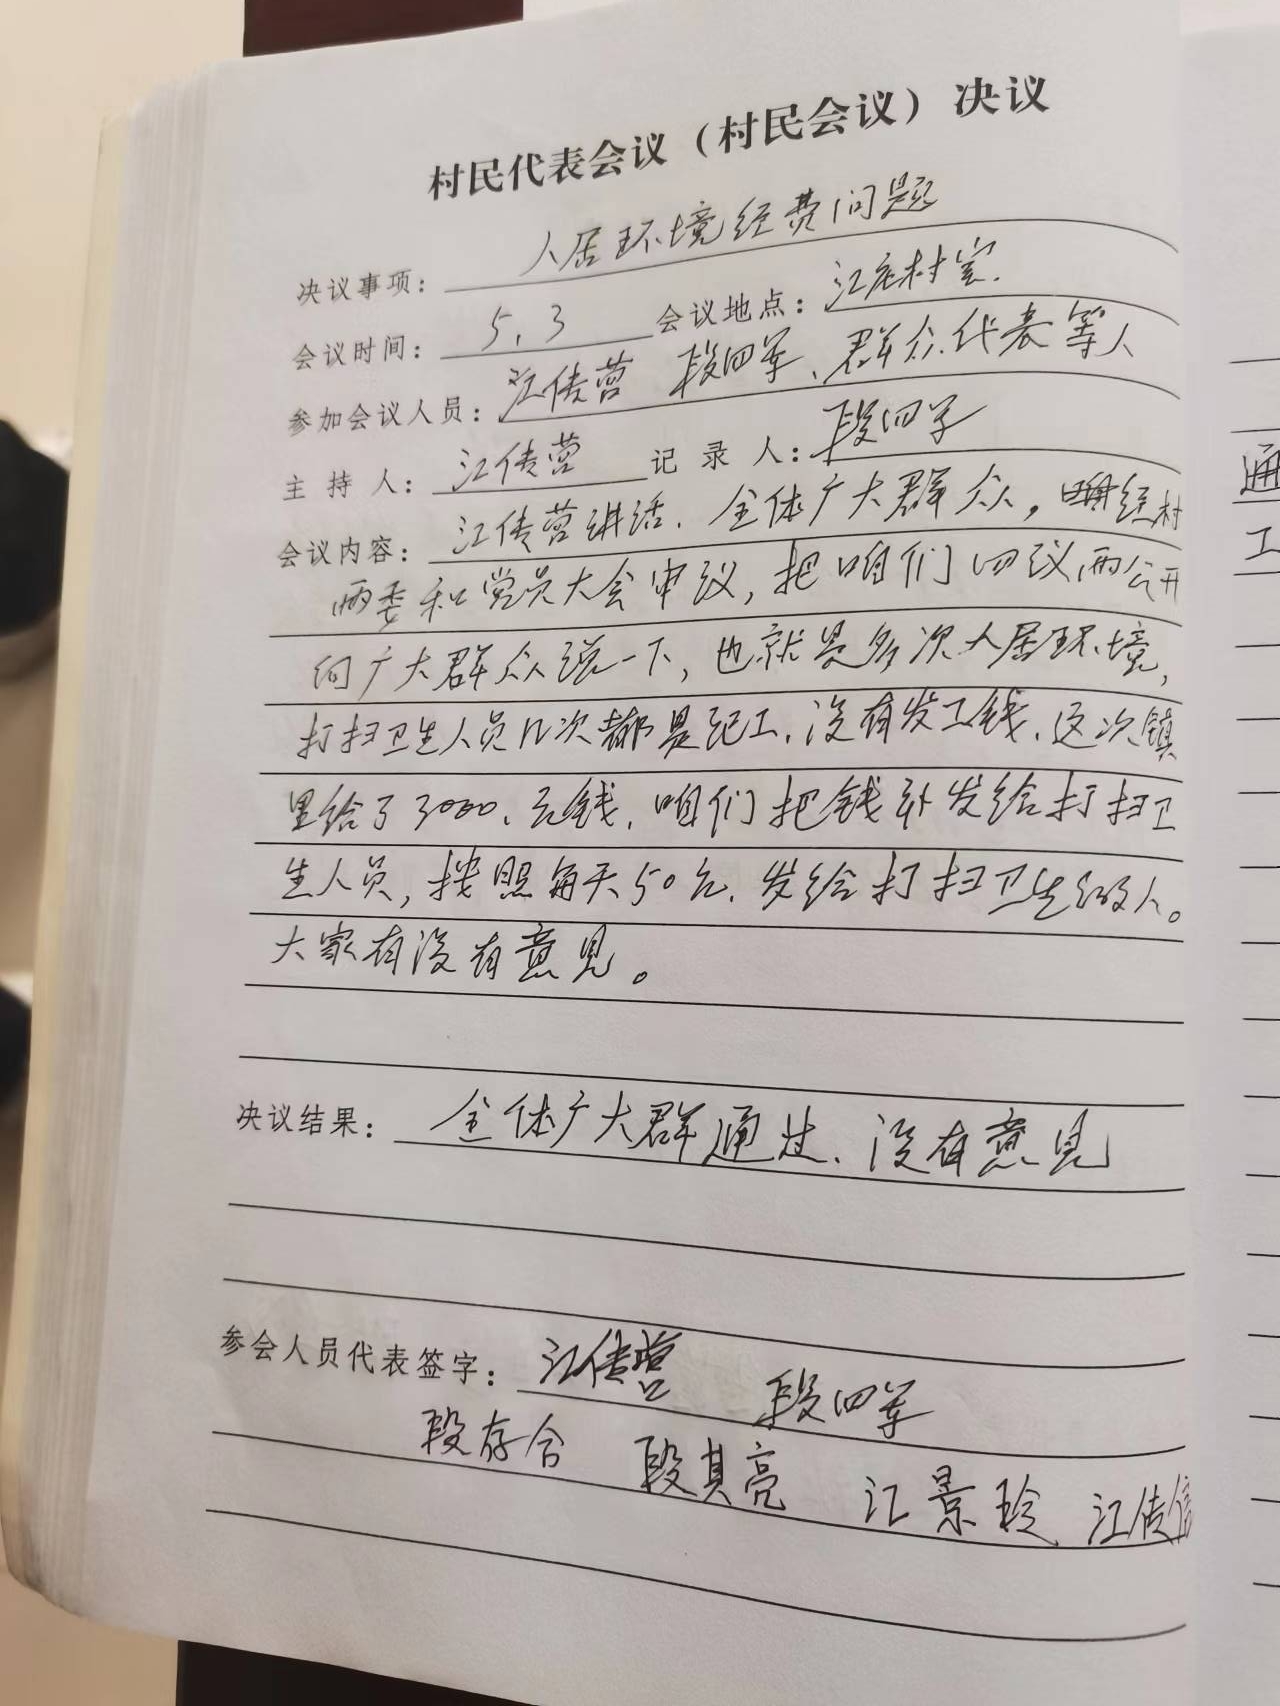 村民代表会议（村民会议）决议
决议事项： 人居环境经费问题
会议时间： 5.3 会议地点： 江庄村室.
参加会议人员： 江传营 段四军、群众代表等人
主持人： 江传营 记录人： 段四军
会议内容： 江传营讲话. 全体广大群众，咱经村
两委和党员大会审议，把咱们四议两公开
向广大群众说一下，也就是多次人居环境，
打扫卫生人员几次都是记工.没有发工钱.这次镇
里给了3000.元钱.咱们把钱补发给打扫卫
生人员，按照每天50元.发给打扫卫生的人。
大家有没有意见。
决议结果： 全体广大群通过、没有意见
参会人员代表签字： 江传营 段四军
段存合 段其亮 江景玲 江传信
通
工